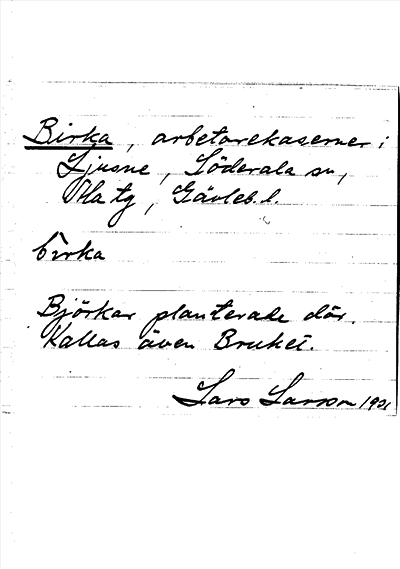 Birka, arbetarekaserner i
Ljusne, Söderala sn,
Ala tg, Gävleb. l.
birka
Björkar planterade där.
Kallas även Bruket.
Lars Larsson 1921